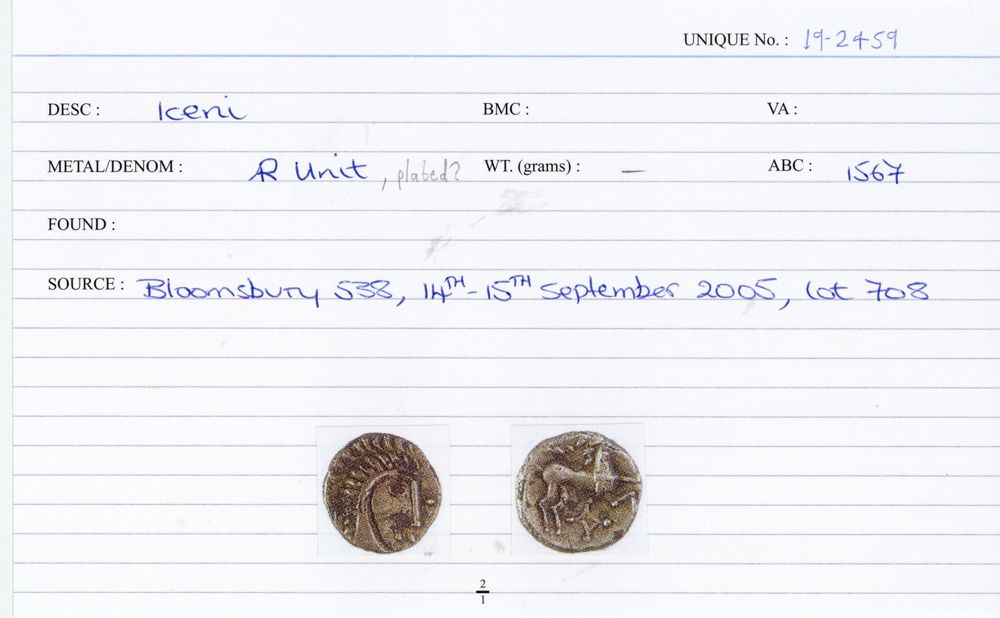 UNIQUE No. : 19-2459
DESC : Iceni BMC : VA :
METAL/DENOM : AR Unit, plated? WT. (grams) : — ABC : 1567
FOUND :
SOURCE : Bloomsbury 538, 14TH-15TH September 2005, lot 708
2
1